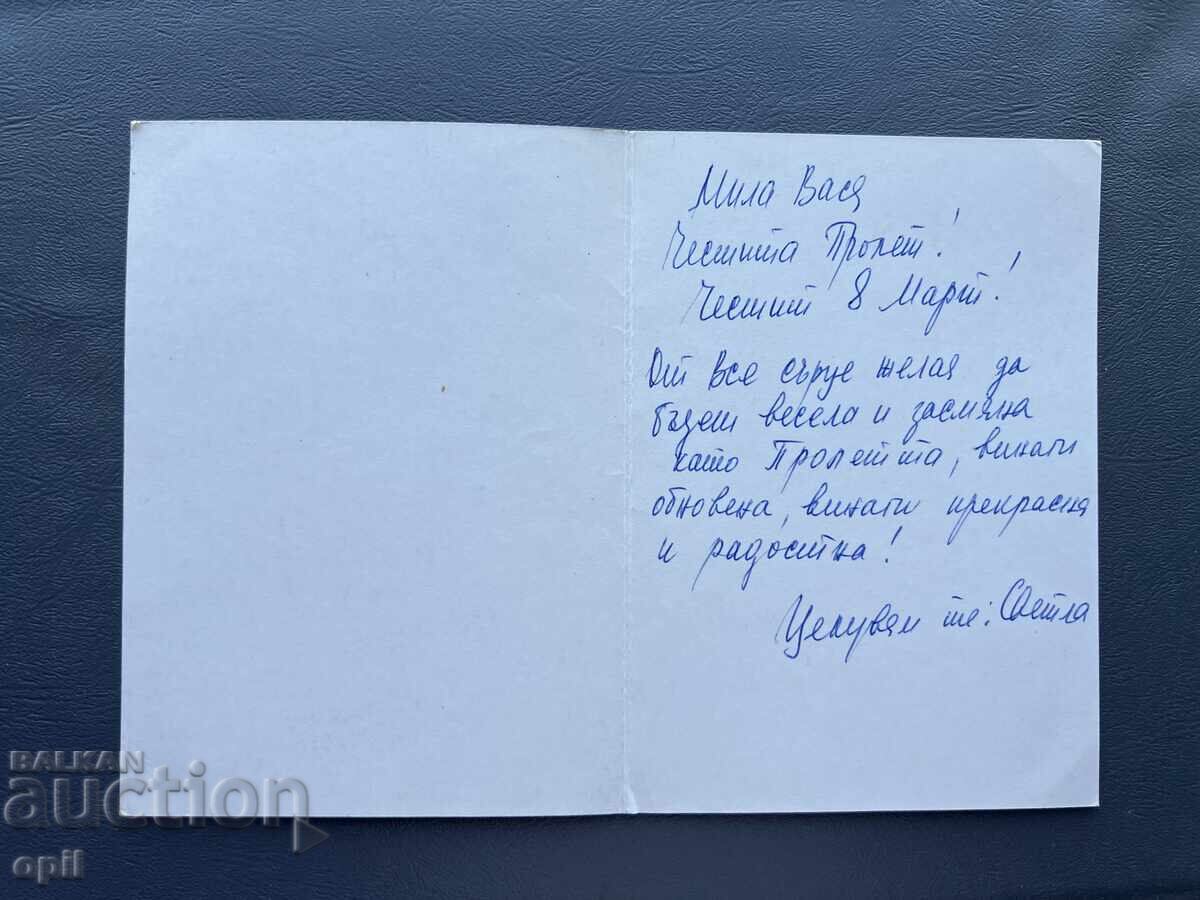 Мила Вася
Честита Пролет!
Честит 8 Март!
От все сърце желая да
бъдеш весела и засмяна
като Пролетта, винаги
обновена, винаги прекрасна
и радостна!
Целувам те: Светла
BALKAN
auction
opil